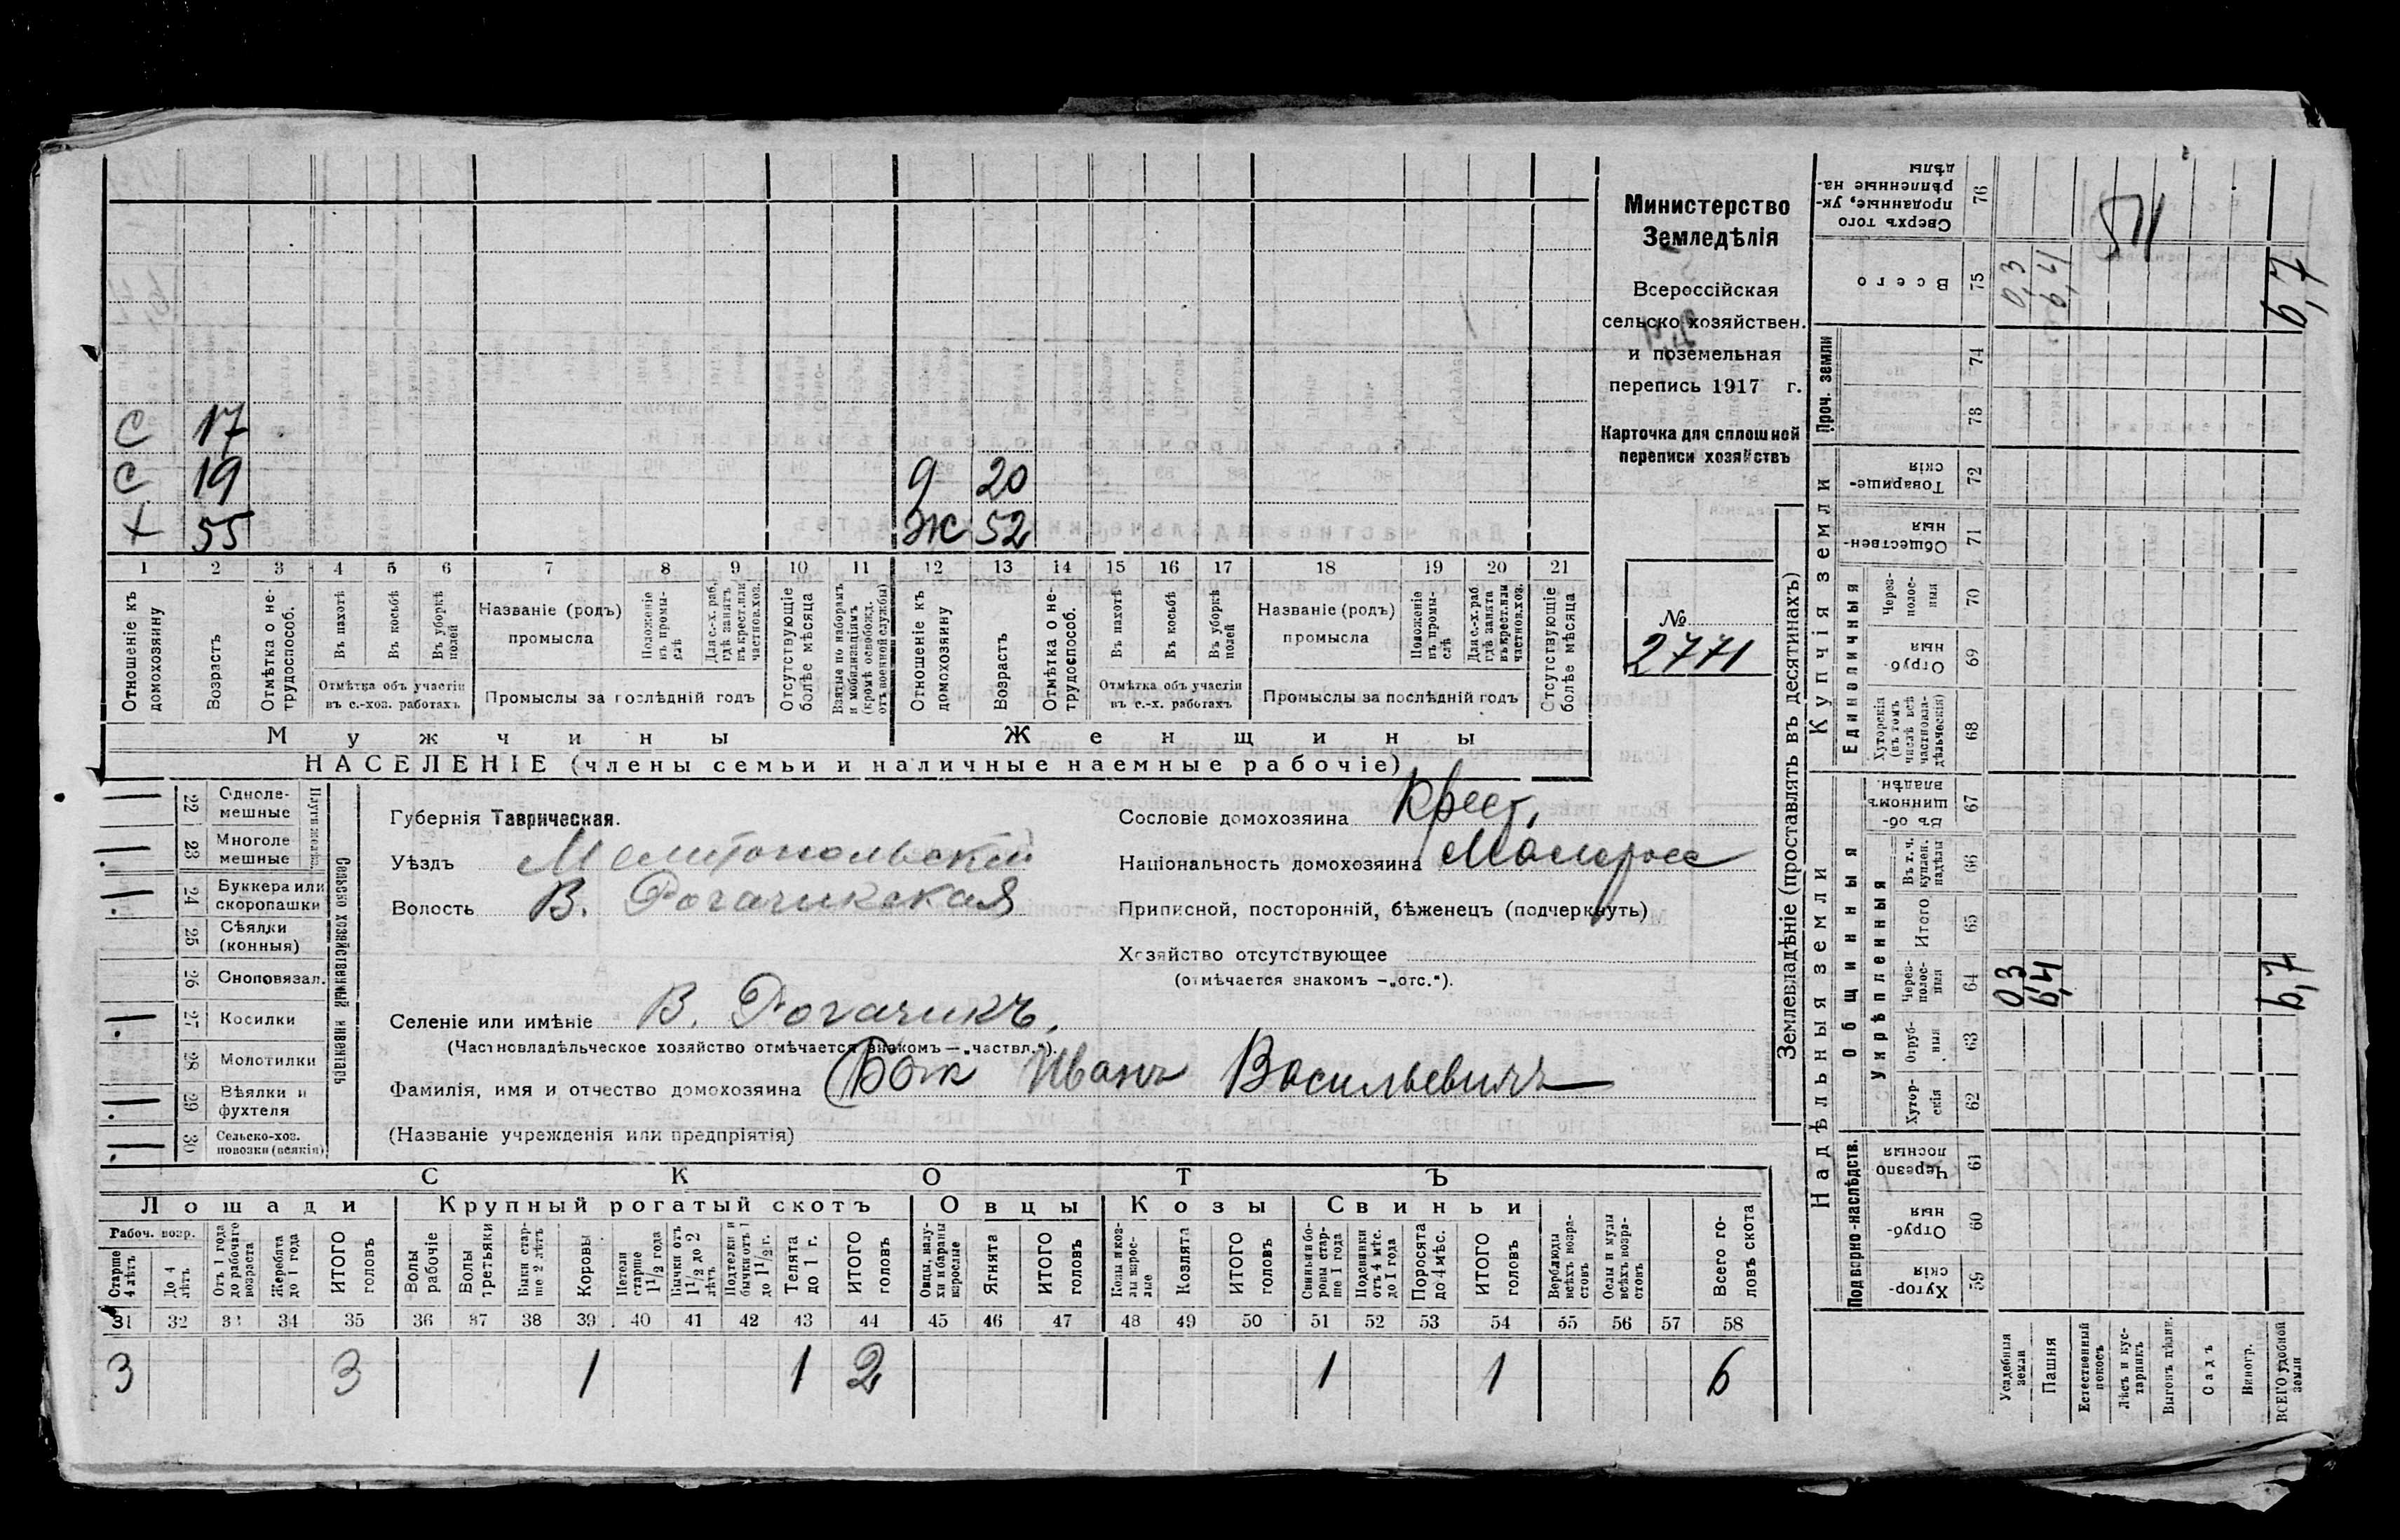 С 17
С 19 д 20
Х 55 Ж 52
1 2 3 4 5 6 7 8 9 10 11 12 13 14 15 16 17 18 19 20 21
Отношеніе къ домохозяину
Возрастъ
Отмѣтка о не-трудоспособ.
Въ пахотѣ
Въ косьбѣ
Въ уборкѣ полей
Отмѣтка объ участіи въ с.-хоз. работахъ
Названіе (родъ) промысла
Положеніе въ промы-слѣ
Для с.-х. раб. гдѣ занятъ въ крест. или частнов. хоз.
Промыслы за послѣдній годъ
Отсутствующіе болѣе мѣсяца
Взятые по наборамъ и мобилизаціямъ (кромѣ освобожд. отъ военной службы)
Отношеніе къ домохозяину
Возрастъ
Отмѣтка о не-трудоспособ.
Въ пахотѣ
Въ косьбѣ
Въ уборкѣ полей
Отмѣтка объ участіи въ с.-х. работахъ
Названіе (родъ) промысла
Положеніе въ промы-слѣ
Для с.-х. раб. гдѣ занята въ крест. или частнов. хоз.
Промыслы за послѣдній годъ
Отсутствующіе болѣе мѣсяца
Мужчины Женщины
НАСЕЛЕНІЕ (члены семьи и наличные наемные рабочіе)
Министерство
Земледѣлія
Всероссійская
сельско хозяйствен.
и поземельная
перепись 1917 г.
Карточка для сплошной
переписи хозяйствъ
№
2771
Сельско хозяйственный инвентарь
22 Однолемешные
23 Многолемешные
24 Буккера или скоропашки
25 Сѣялки (конныя)
26 Сноповязал.
27 Косилки
28 Молотилки
29 Вѣялки и фухтеля
30 Сельско-хоз. повозки (всякія)
Губернія Таврическая.
Уѣздъ Мелитопольскій
Волость В. Рогачикская
Селеніе или имѣніе В. Рогачикъ.
(Частновладѣльческое хозяйство отмѣчается знакомъ—„частвл.“).
Фамилія, имя и отчество домохозяина Бож Иванъ Васильевичъ
(Названіе учрежденія или предпріятія)
Сословіе домохозяина Крест.
Національность домохозяина Малоросс
Приписной, посторонній, бѣженецъ (подчеркнуть)
Хозяйство отсутствующее
(отмѣчается знакомъ —„отс.“).
СКОТЪ
Лошади Крупный рогатый скотъ Овцы Козы Свиньи
Рабоч. возр.
Старше 4 лѣтъ
До 4 лѣтъ
Отъ 1 года до рабочаго возраста
Жеребята до 1 года
ИТОГО головъ
Волы рабочіе
Волы третьяки
Быки стар-ше 2 лѣтъ
Коровы
Нетели старше 1 1/2 года
Бычки отъ 1 1/2 до 2 лѣтъ
Подтелки и бычки отъ 1 до 1 1/2 г.
Телята до 1 г.
ИТОГО головъ
Овцы, валу-хи и бараны взрослые
Ягнята
ИТОГО головъ
Козы и коз-лы взрос-лые
Козлята
ИТОГО головъ
Свиньи и бо-ровы стар-ше 1 года
Подсвинки отъ 4 мѣс. до 1 года
Поросята до 4 мѣс.
ИТОГО головъ
Верблюды всѣхъ возра-стовъ
Ослы и мулы всѣхъ возра-стовъ
Всего го-ловъ скота
31 32 33 34 35 36 37 38 39 40 41 42 43 44 45 46 47 48 49 50 51 52 53 54 55 56 57 58
3 3 1 1 2 1 1 6
Землевладѣніе (проставлять въ десятинахъ)
Надѣльныя земли Купчія земли Проч. земли
Подворно-наслѣдств.
Общинныя
Укрѣпленныя
Единоличныя
Хутор-скія 59
Отруб-ныя 60
Черезпо лосныя 61
Хутор-скія 62
Отруб-ныя 63
Через-полос-ныя 64
Итого 65
Въ т. ч. куплен. надѣлы 66
Въ об-щинномъ владѣн. 67
Хуторскія (въ томъ числѣ всѣ частновла-дѣльческія) 68
Отруб-ныя 69
Через-полос-ныя 70
Обществен-ныя 71
Товарище-скія 72
73
74
Всего 75
Сверхъ того проданные, ук-рѣпленные на-дѣлы 76
Усадебныя земли 0,3 0,3
Пашня 6,4 6,4
Естественный покосъ
Лѣсъ и кус-тарникъ
Выгонъ цѣлин.
Садъ
Виногр.
ВСЕГО удобной земли 6,7 6,7